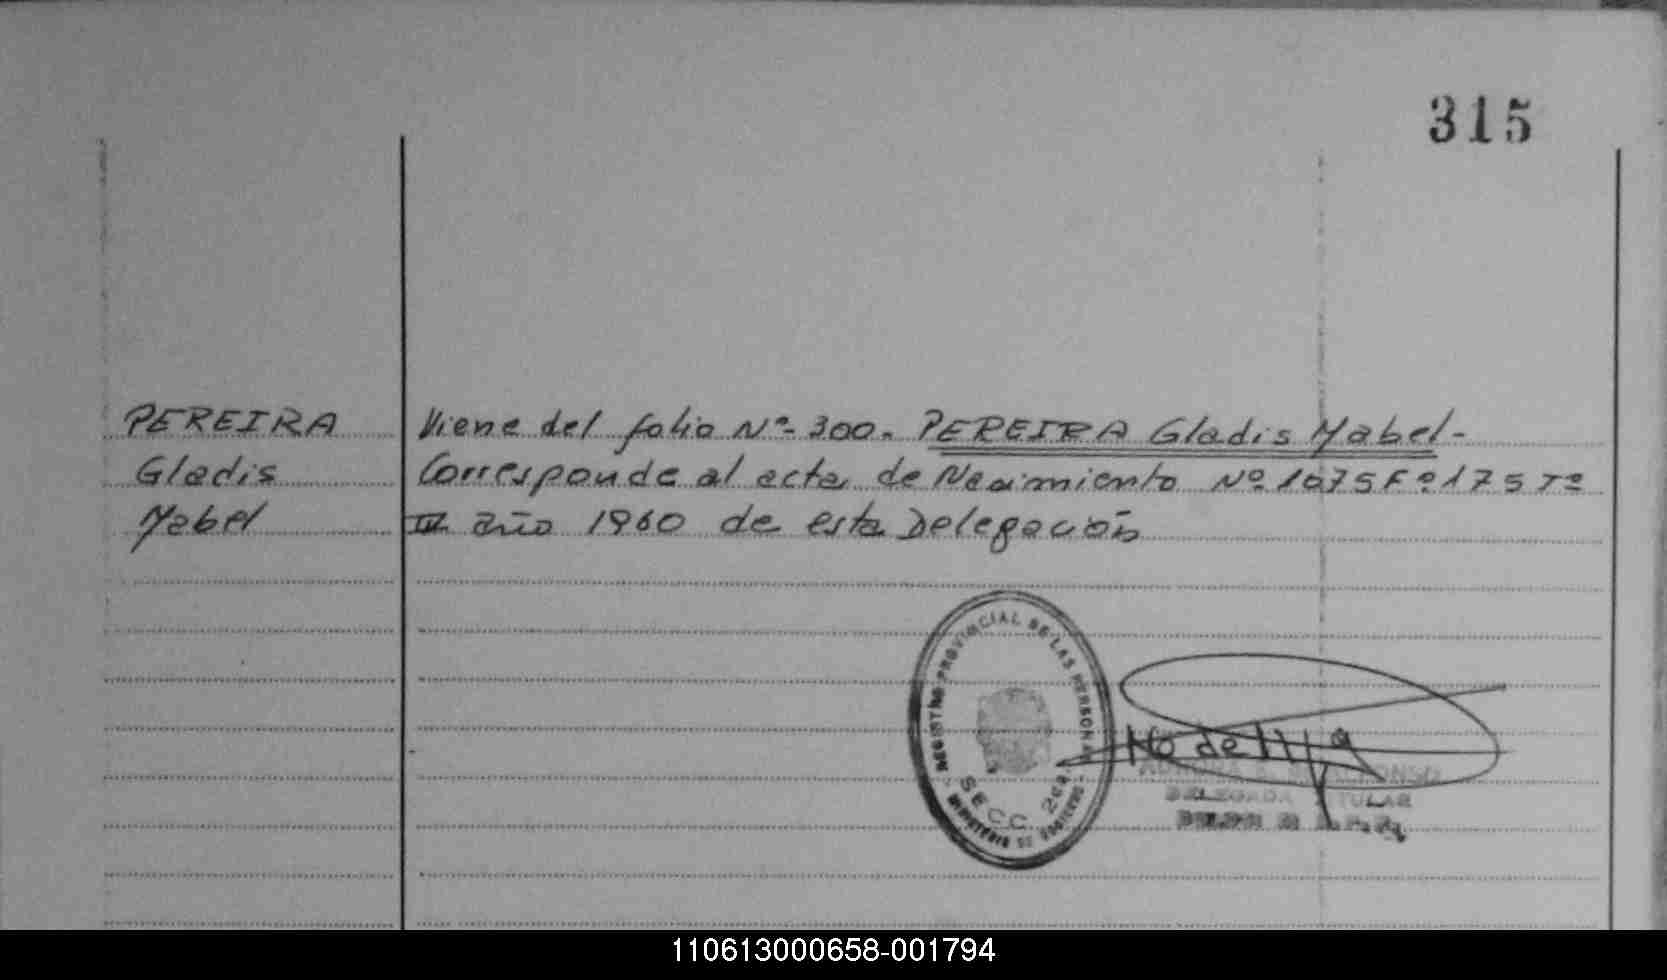 315
PEREIRA
Gladis
Mabel
Viene del folio Nº-300. PEREIRA Gladis Mabel-
Corresponde al acta de Nacimiento Nº 1075 Fº 175 Tº
III año 1960 de esta Delegación
REGISTRO PROVINCIAL DE LAS PERSONAS
SECC. 2da
MINISTERIO DE GOBIERNO
DELEGADA TITULAR
110613000658-001794